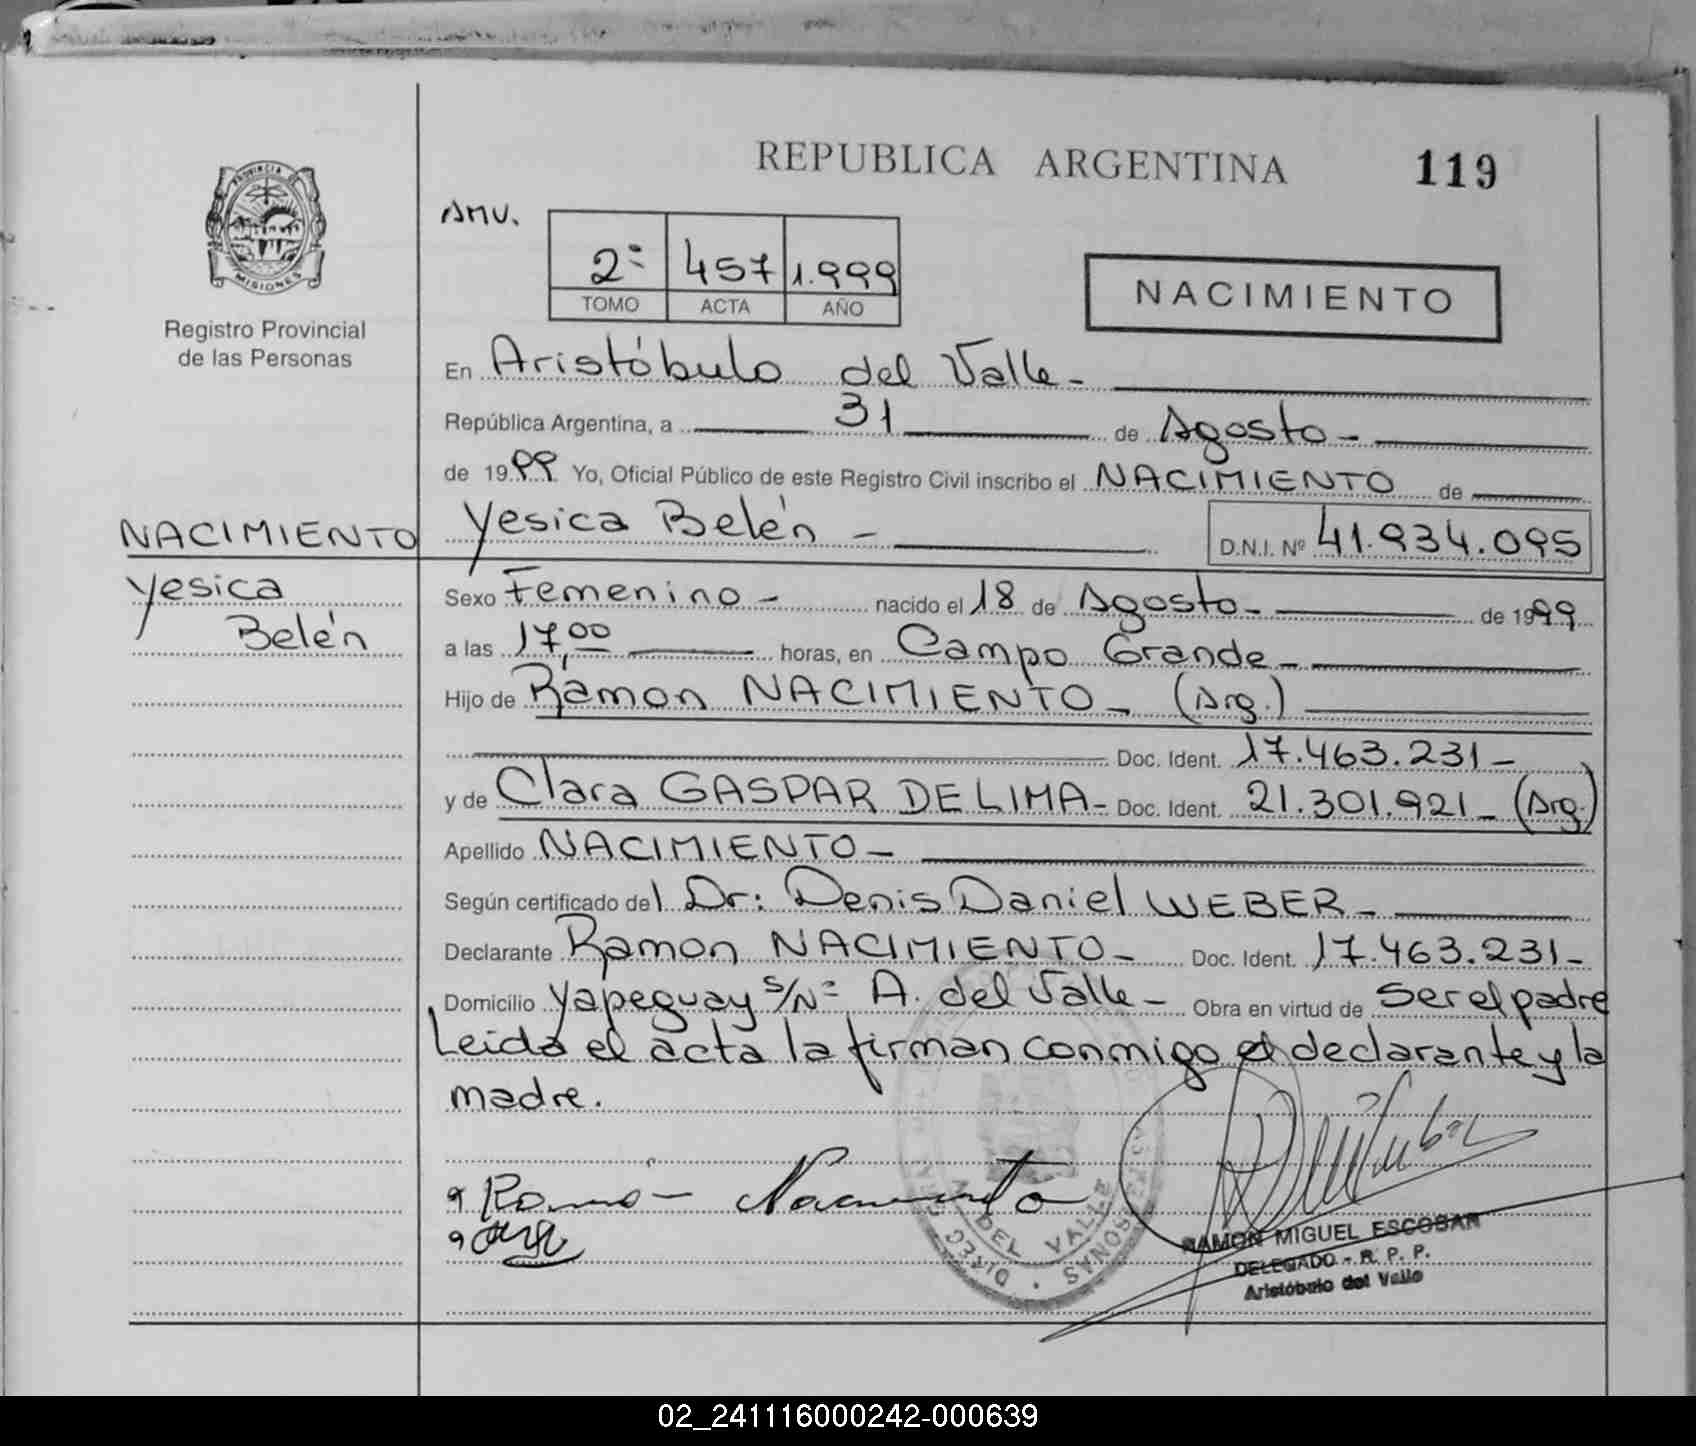 REPUBLICA ARGENTINA 119
PROVINCIA DE
MISIONES
Registro Provincial
de las Personas
AMV.
2º 457 1.999
TOMO ACTA AÑO
NACIMIENTO
En Aristóbulo del Valle -
República Argentina, a 31 de Agosto -
de 1999 Yo, Oficial Público de este Registro Civil inscribo el NACIMIENTO de
NACIMIENTO
Yesica
Belén
Yesica Belén - D.N.I. Nº 41.934.095
Sexo Femenino - nacido el 18 de Agosto - de 1999
a las 17,00 horas, en Campo Grande -
Hijo de Ramon NACIMIENTO - (Arg.)
Doc. Ident. 17.463.231 -
y de Clara GASPAR DE LIMA - Doc. Ident. 21.301.921 - (Arg.)
Apellido NACIMIENTO -
Según certificado del Dr: Denis Daniel WEBER -
Declarante Ramon NACIMIENTO - Doc. Ident. 17.463.231 -
Domicilio Yapeguay s/Nº A. del Valle - Obra en virtud de ser el padre
Leida el acta la firman conmigo el declarante y la
madre.
Ramo- Nacimiento
A. DEL VALLE
PERSONAS
RAMON MIGUEL ESCOBAR
DELEGADO - R. P. P.
Aristóbulo del Valle
02_241116000242-000639